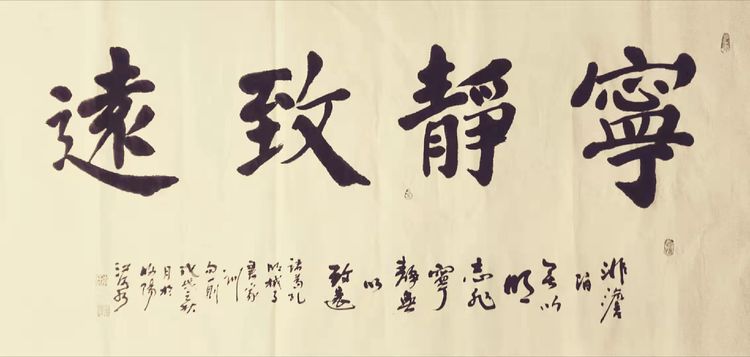 寧靜致遠
非澹
泊
無以
明
志非
寧
靜無
以
致遠
諸葛孔
明誡子
書家
訓
句一則
秋
月於
洛陽